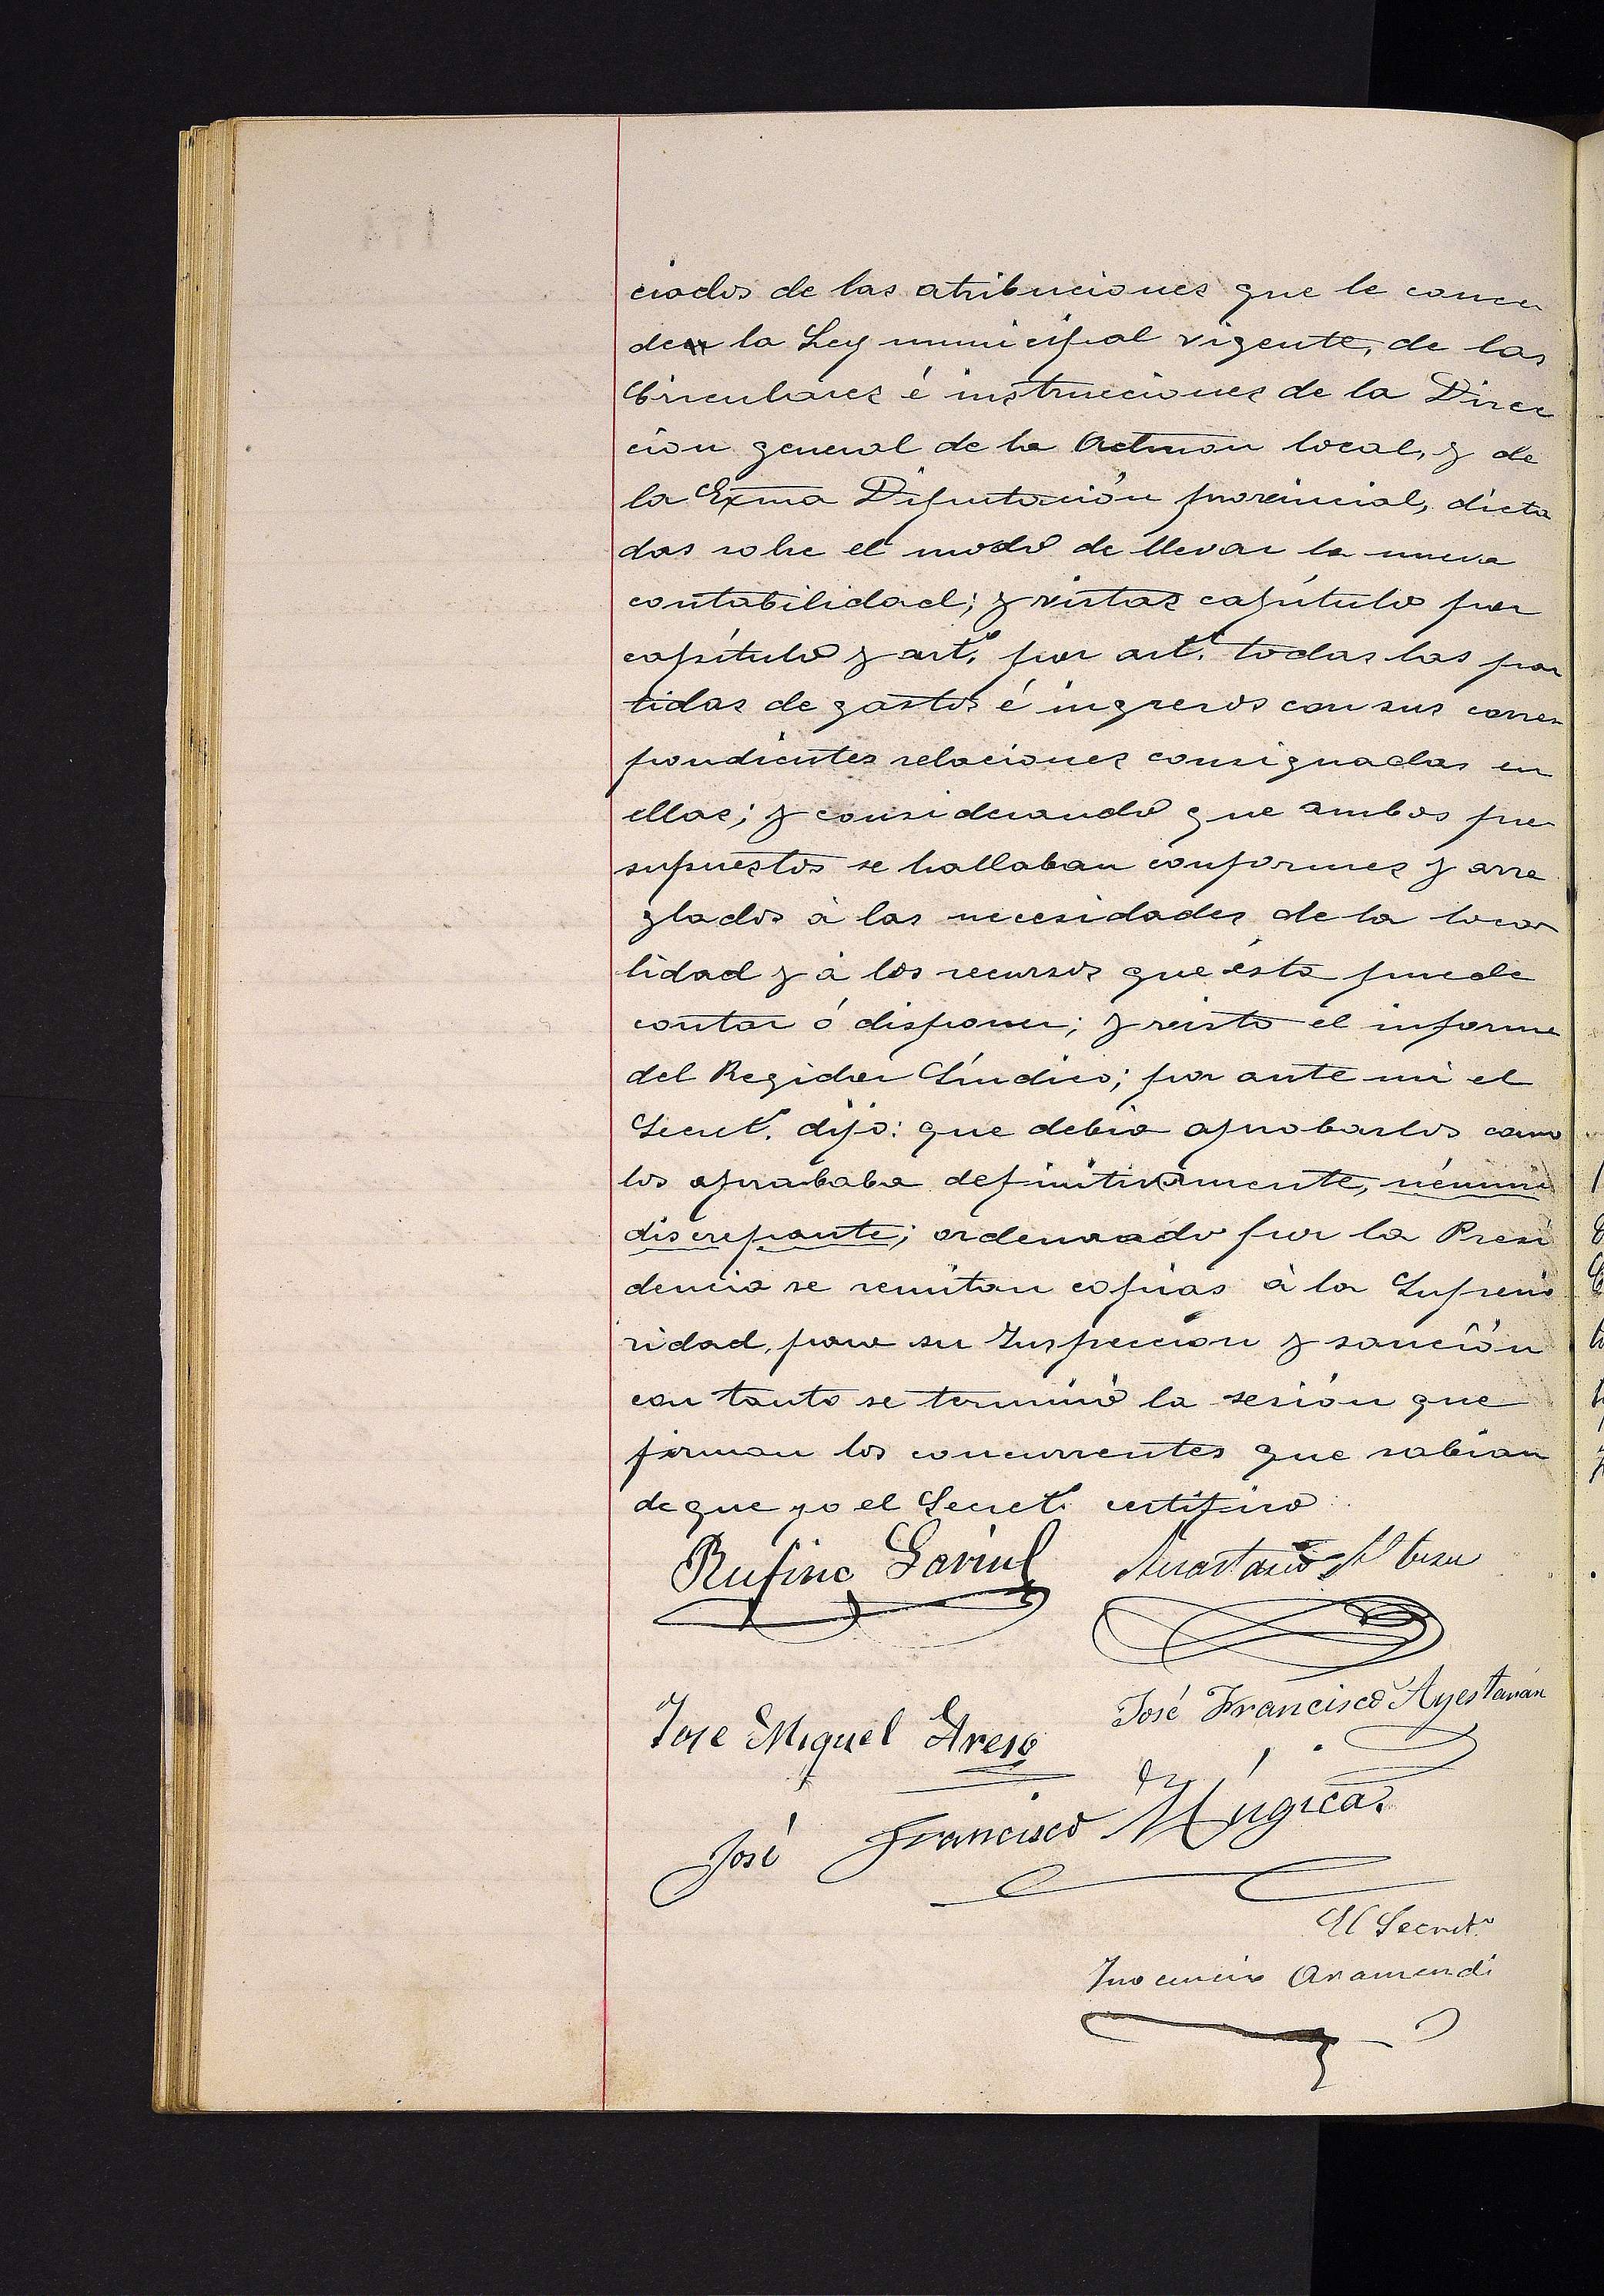 ciados de las atribuciones que le conce
de la Ley municipal vigente, de las
Circulares é instrucciones de la Direc
cion general de la Admon local, y de
la Exma Diputación provincial, dicta
das sobre el modo de llevar la nueva
contabilidad; y vistas capítulo por
capítulo y artº. por artº. todas las par
tidas de gastos é ingresos con sus corres
pondientes relaciones consignadas en
ellas; y considerando que ambos pre
supuestos se hallaban conformes y arre
glados à las necesidades de la loca
lidad y à los recursos que ésta puede
contar ó disponer; y visto el informe
del Regidor Síndico; por ante mi el
Secretº. dijo: que debia aprobarlos como
los aprobaba definitivamente, némine
discrepante; ordenando por la Presi
dencia se remitan copias à la Superio
ridad, para su Inspeccion y sanción
con tanto se terminó la sesión que
firman los concurrentes que sabian
de que yo el Secretº. certifico
Rufino Anastasio
José Francisco Ayestarán
Jose Miguel Areso
José Francisco Múgica.
El Secretº
Inocencio Aramendi